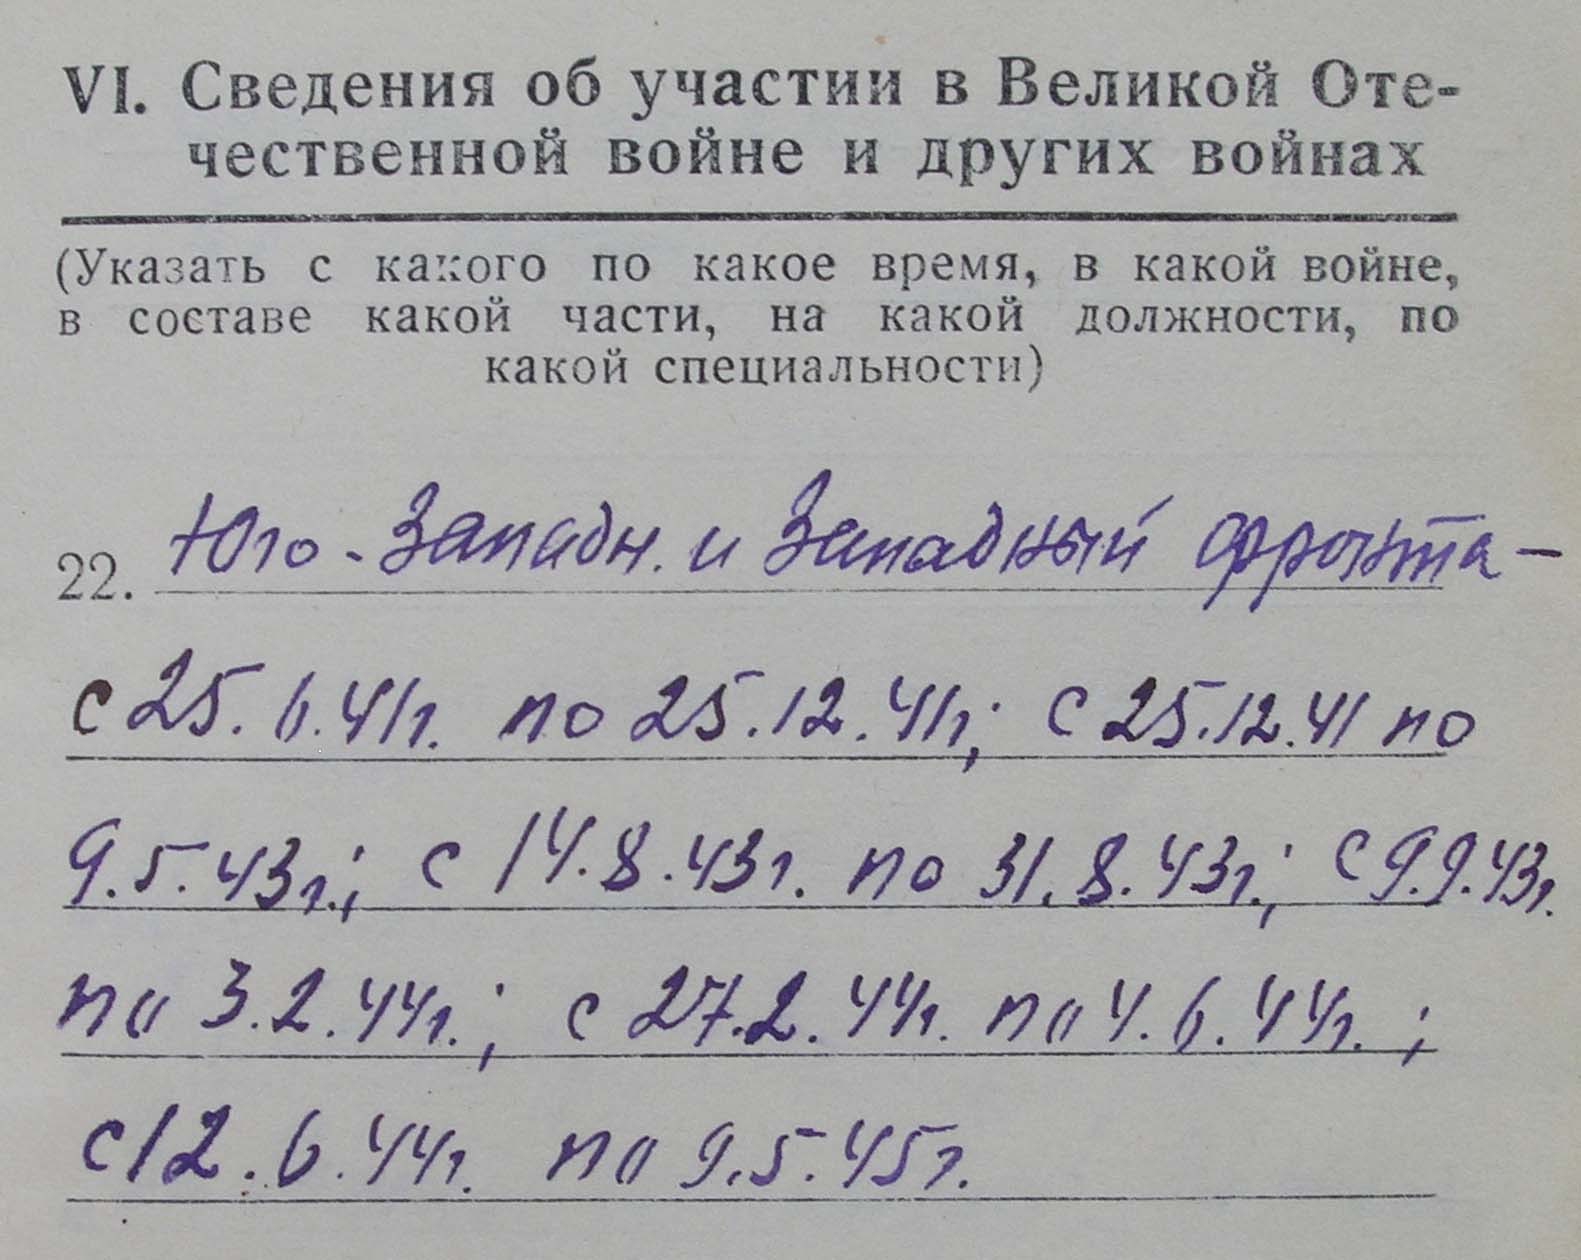 VI. Сведения об участии в Великой Оте-
чественной войне и других войнах
(Указать с какого по какое время, в какой войне,
в составе какой части, на какой должности, по
какой специальности)
22. Юго-Западн. и Западный фронта -
с 25.6.41г. по 25.12.41г; с 25.12.41 по
9.5.43г.; с 14.8.43г. по 31.8.43г.; с 9.9.43г.
по 3.2.44г.; с 27.2.44г. по 4.6.44г.;
с 12.6.44г. по 9.5.45г.